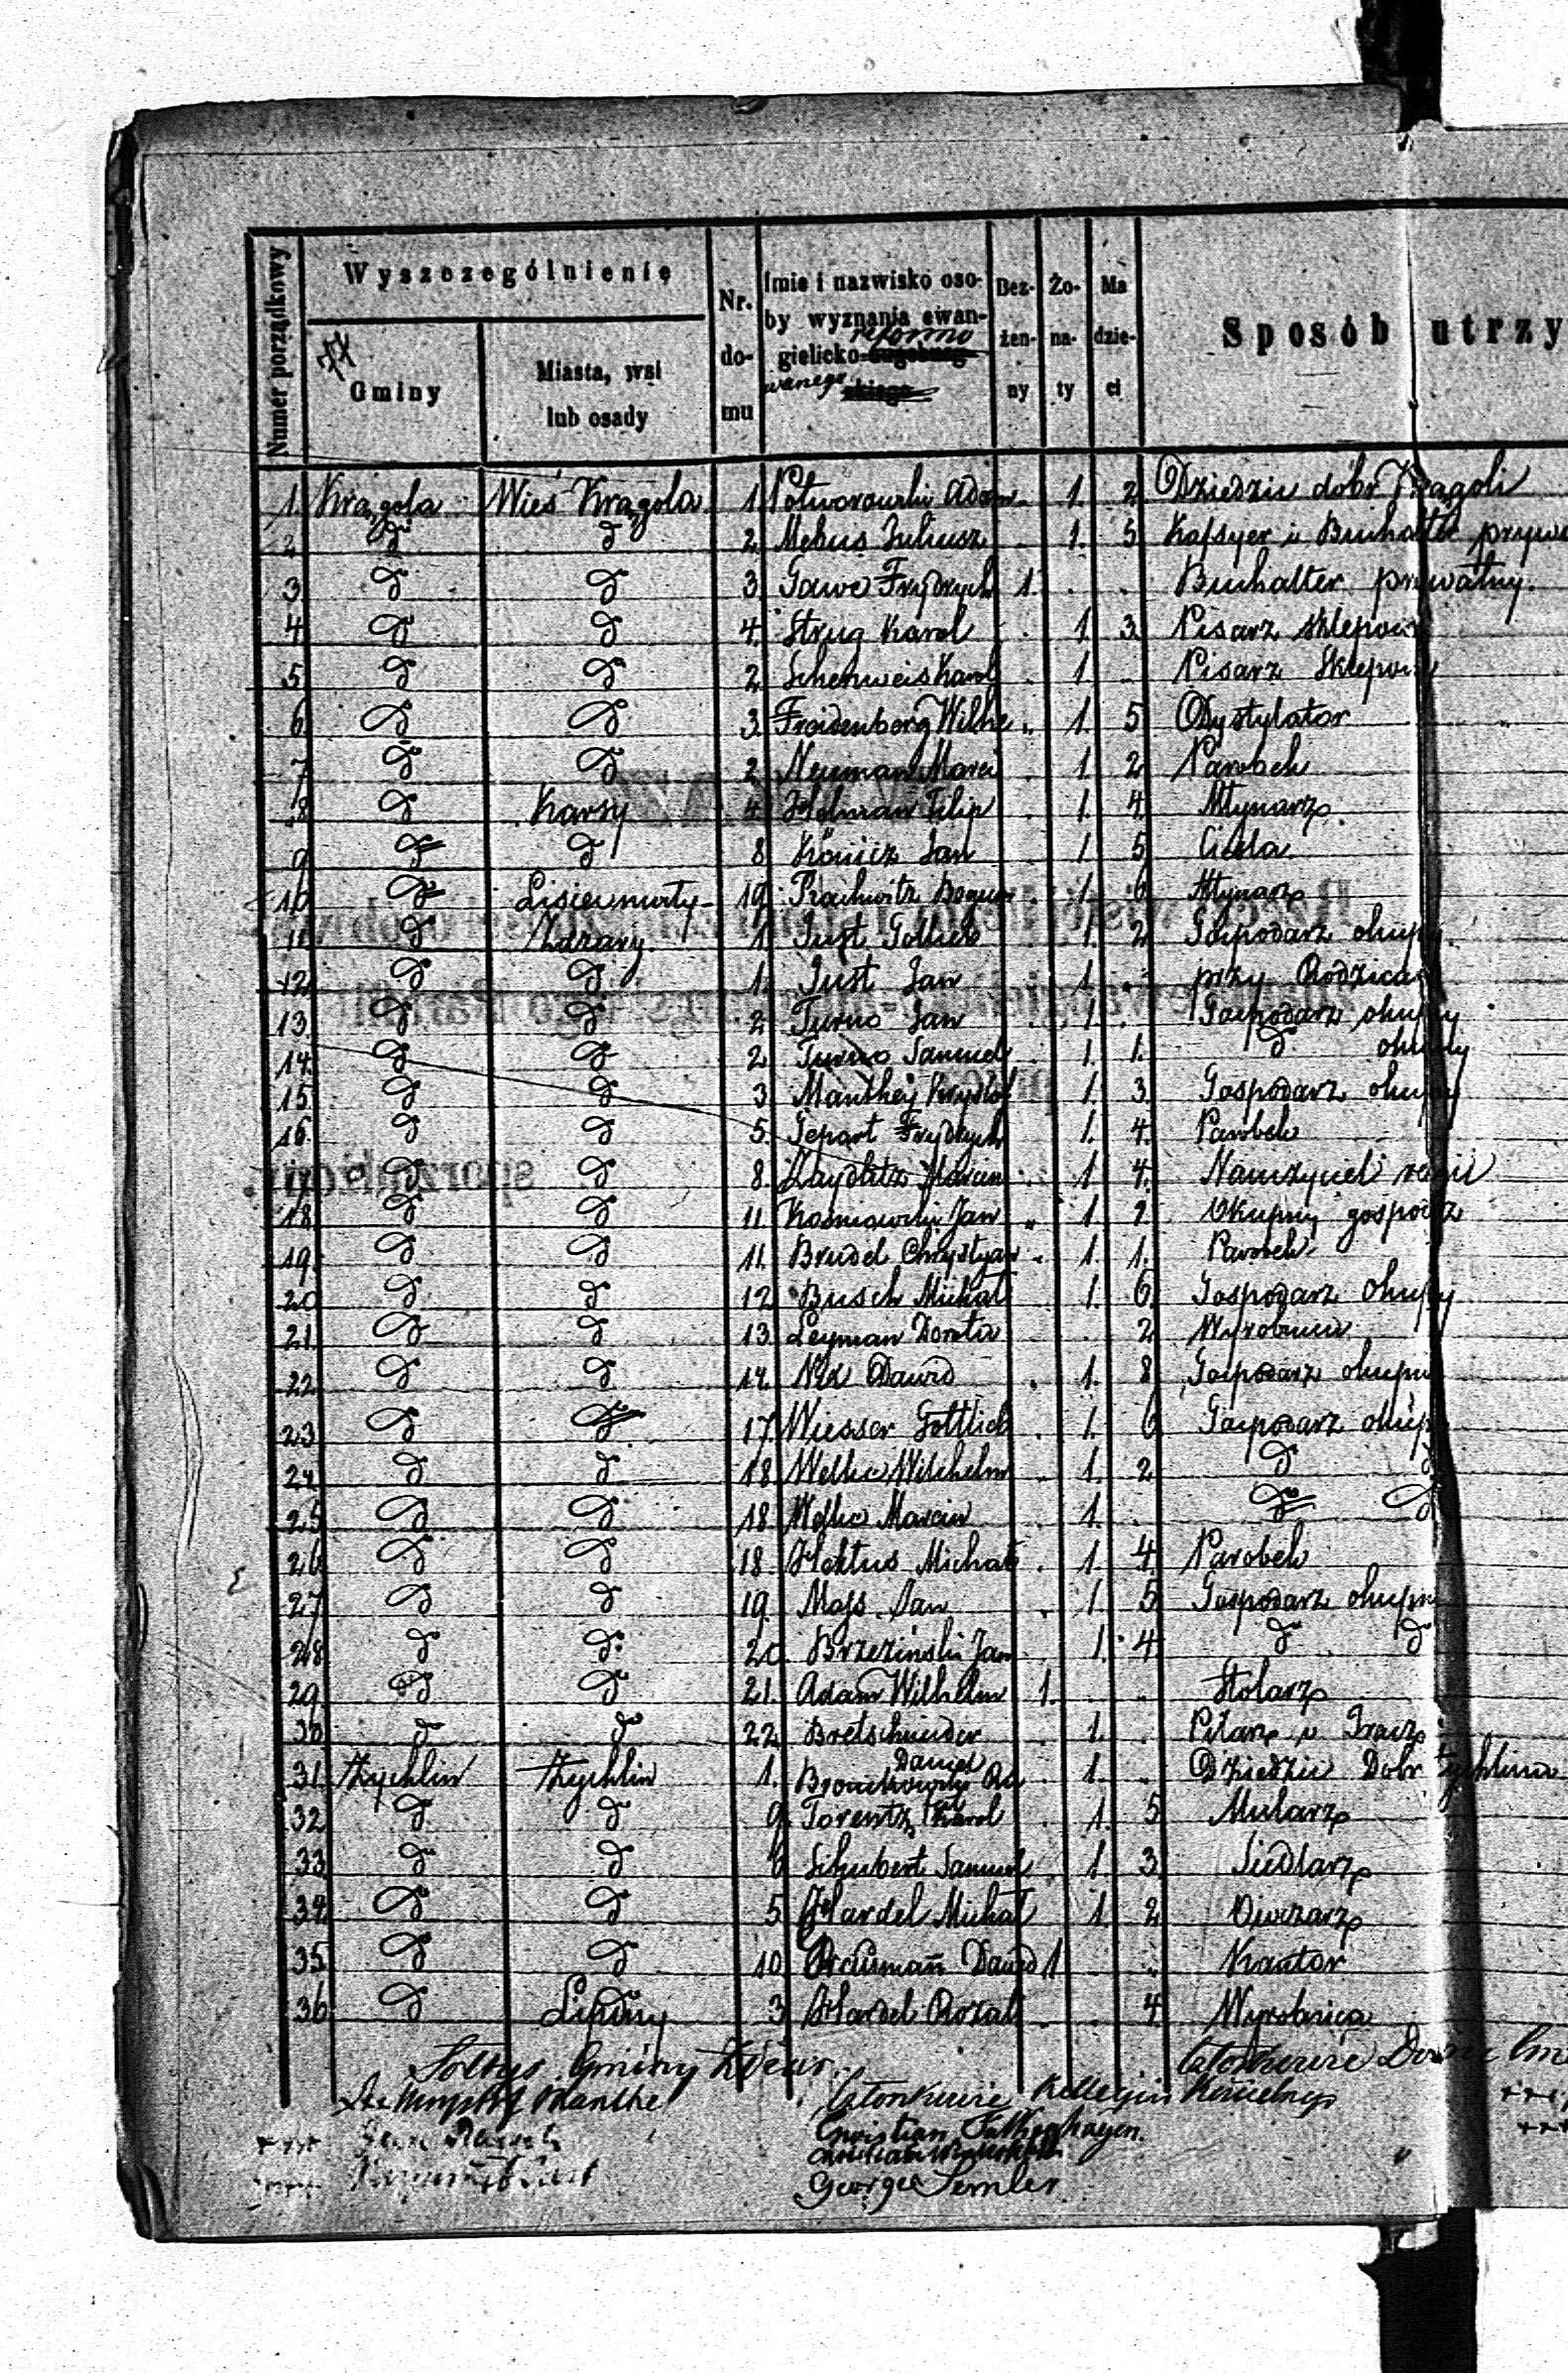 Numer porządkowy | Wyszczególnienie | Gminy | Miasta, wsi lub osady | Nr. domu | Imie i nazwisko osoby wyznania ewangielicko-reformowanego | Bezżenny | Żonaty | Ma dzieci | Sposób utrzy
1. Krągola Wieś Krągola 1 Potworowski Adam 1. 2 Dziedzic dóbr Krągoli
2 d d 2 Mebus Juliusz 1. 5 Kassyer i Buchalter prywa
3 d d 3 Frydrych 1. Buchalter prywatny.
4 d d 4. Strug Karol 1. 3 Pisarz sklepowy
5 d d 2 Schenweis Karol 1 Pisarz Sklepowy
6 d d 3 Freidenberg Wilhe 1. 5 Dystylator
7 d d 2 Neuman Marci 1. 2 Parobek
8 d Karsy 4 Filip 1. 4. Młynarz
9 d d 8 Jan 1 5 Ciesla
10 d 19 1. 6 Młynarz
11 d Zdzary 1 Just Gotlieb 1. 2 Gospodarz okupny
12 d d 1. Just Jan 1 przy Rodzicach
13. d d 2 Turno Jan 1. Gospodarz okupny
14. d d 2 Turno Samuel 1. 1. d okupny
15 d d 3 Manthey Krystof 1. 3. Gospodarz okupny
16. d d 5. Gepart Frydrych 1. 4. Parobek
17 d d 8. Zaydlitz Marcin 1 4. Nauczyciel
18 d d 11 Jan 1 Okupny gospodarz
19. d d 11. Brudel Chrystyan 1. 1. Parobek
20 d d 12 Busch Michał 1. 6. Gospodarz Okupny
21. d d 13. Leyman Dorota 2 Wyrobnica
22 d d 14. Dawid 1. 8 Gospodarz okupny
23 d d 17. Wiesser Gottlieb 1. 6 Gospodarz okup
24. d d 18 Welke Wilhelm 1. 2 d d
25 d d 18 Welke Marcin 1. d d
26 d d 18. Michał 1. 4. Parobek
27 d d 19. Mass Jan 1. 5 Gospodarz okupn
28 d d 20. Brzezinski Jan 1. 4 d d
29 d d 21. Adam Wilhelm 1. Stolarz
30 d d 22 Bretschneider Daniel 1. Pilarz i Tracz
31. Żychlin Żychlin 1. Bronikowski 1. Dziedzic Dobr Żychlina
32 d d 9 Lorentz Karol 1. 5 Mularz
33 d d 6 Schubert Samuel 1. 3 Siedlarz
34. d d 5 Hardel Michał 1. 2 Owczarz
35 d d 10 Dawid 1 Kantor
36 d Lipiny 3 Hardel Rozal 4. Wyrobnica
Sołtys Gminy
Krysztof Manthe
Członkowie Kollegium Kościelnego
Christian Falkenhagen
George Semler
Członkowie